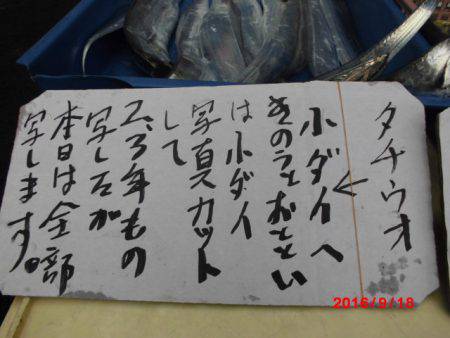 タチウオ
小ダイへ
きのうとおとゝい
は小ダイ
写真カット
して
2、3年もの
写したが
本日は全部
写します。
2016/9/18